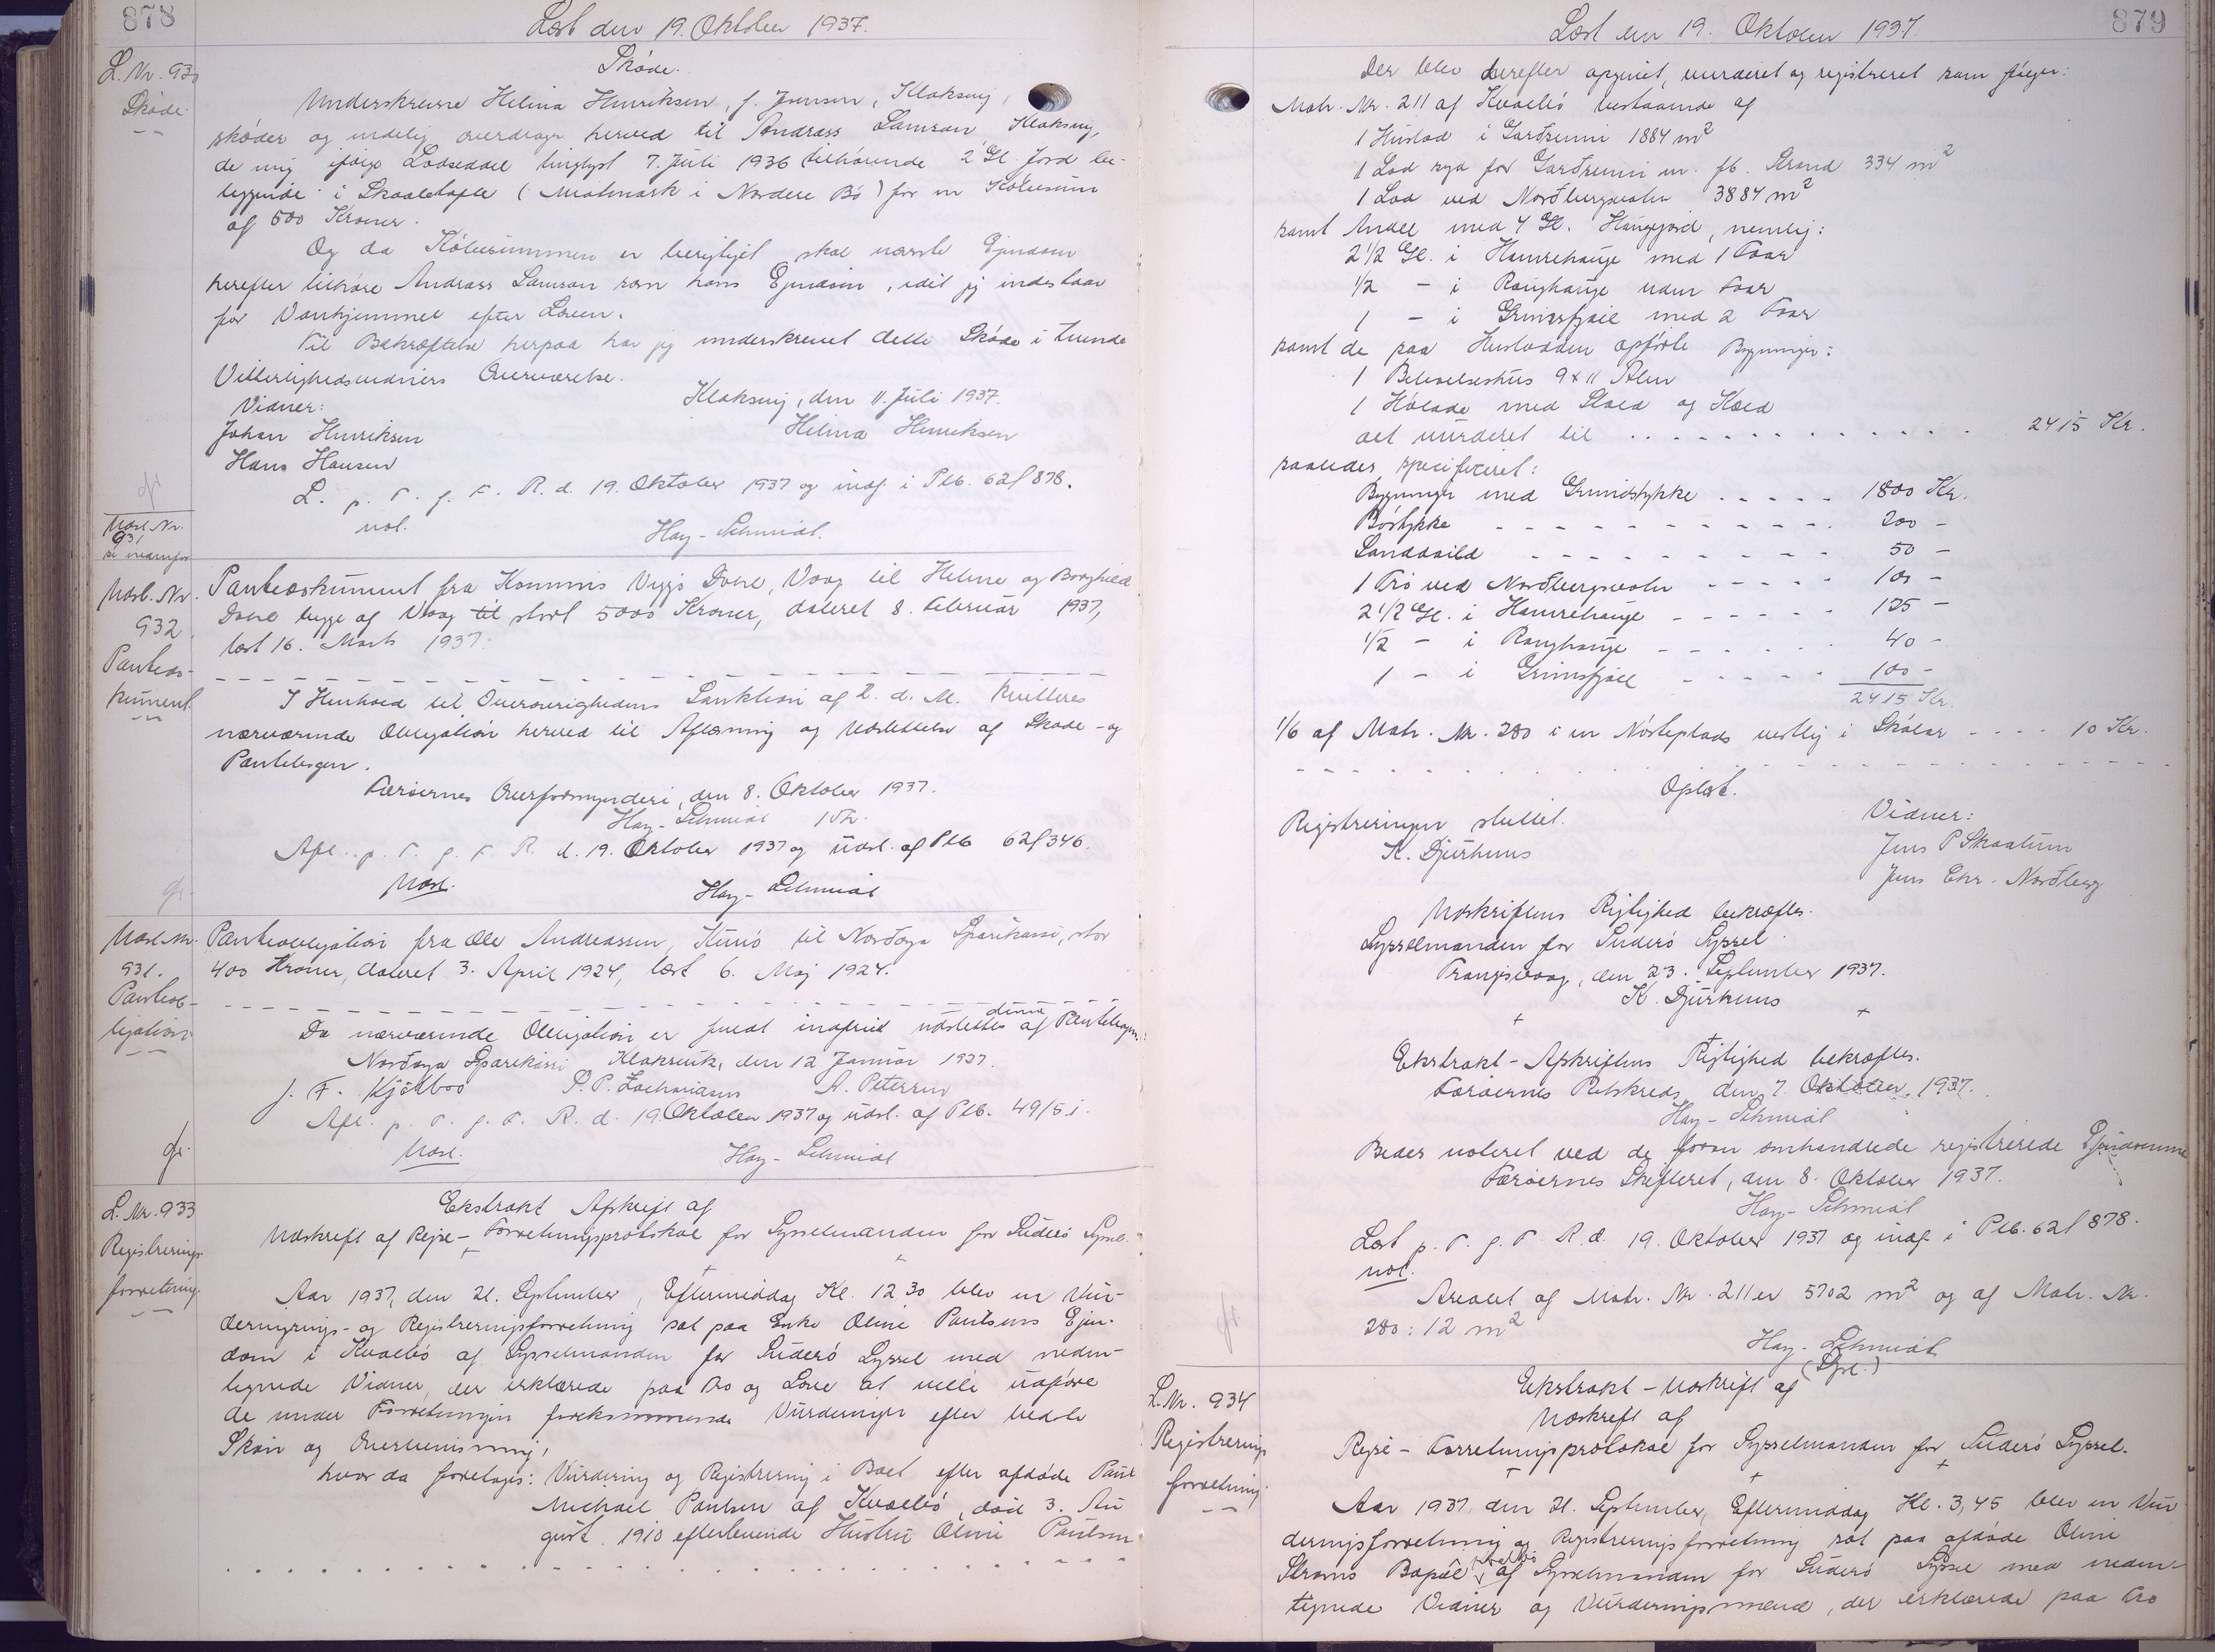 878
Læst den 19. Oktober 1937.
L. Nr. 930
Skøde
Skøde.
Underskrevne Helina Henriksen, f. Joensen, Klaksvig,
skøder og endelig overdrager herved til Andrass Samson Klaksvig,
de mig ifølge Lodseddel tinglyst 7. Juli 1936 tilhørende 2 Gl. Jord be-
liggende i Skaaletofte (Matmark i Nordere Bø) for en Købesum
af 500 Kroner.
Og da Købesummen er berigtiget skal nævnte Ejendom
herefter tilhøre Andrass Samson som hans Ejendom, idet jeg indestaar
for Vanhjemmel efter Loven.
Til Bekræftelse herpaa har jeg underskrevet dette Skøde i tvende
Vitterlighedsvidners Overværelse.
Klaksvig, den 11. Juli 1937.
Vidner:
Johan Henriksen
Helina Henriksen
Hans Hansen
L. p. T. f. F. R. d. 19. Oktober 1937 og indf. i Ptb. 62f 878.
not.
Hay-Schmidt.
Udsl. Nr.
931
se nedenfor
Udsl. Nr.
932
Pantedo-
kument
Pantedokument fra Viggo Dahl, Vaag til Helene og Borghild
Dahl begge af Vaag til stort 5000 Kroner, dateret 8. Februar 1937,
læst 16. Marts 1937.
I Henhold til Overøvrighedens Sanktion af 2. d. M. kvitteres
nærværende Obligation herved til Aflæsning og Udslettelse af Skøde- og
Pantebogen.
Færøernes Overformynderi, den 8. Oktober 1937.
Hay-Schmidt
Afl. p. T. f. F. R. d. 19. Oktober 1937 og udsl. af Ptb 62f 346.
Udsl.
Hay-Schmidt
Udsl. Nr.
931.
Panteob-
ligation
Panteobligation fra Ole Andreassen, Kunø til Norðoya Sparikassi, stor
400 Kroner, dateret 3. April 1924, læst 6. Maj 1924.
Da nærværende Obligation er fuldt indfriet udslettes denne af Pantebogen.
Norðoya Sparikassi Klaksvik, den 12 Januar 1937.
J. F. Kjølbro P. P. Zachariasen A. Petersen
Afl. p. T. f. F. R. d. 19. Oktober 1937 og udsl. af Ptb. 49/51.
Udsl.
Hay-Schmidt
L. Nr. 933
Registrerings-
forretning
Ekstrakt Afskrift af
Udskrift af Rejse-Forretningsprotokol for Sysselmanden for Suderø Syssel.
Aar 1937, den 21. September, Eftermiddag Kl. 12 30 blev en Vur-
derings- og Registreringsforretning sat paa Enke Oline Poulsens Ejen-
dom i Kvalbø af Sysselmanden for Suderø Syssel med neden-
tegnede Vidner, der erklærede paa Tro og Love at ville udføre
de under Forretningen forekommende Vurderinger efter bedste
Skøn og Overbevisning,
hvor da foretoges: Vurdering og Registrering i Boet efter afdøde Poul
Michael Poulsen af Kvalbø, død 3. Au-
gust 1910 efterlevende Hustru Oline Poulsen
879
Læst den 19. Oktober 1937.
Der blev derefter opgivet, vurderet og registreret som følger:
Matr. Nr. 211 af Kvalbø bestaaende af
1 Huslod i Garðrunni 1884 m²
1 Lod syd for Garðrunni 334 m²
1 Lod ved Norðbergsvolu 3884 m²
samt Andel med 4 Gl. Haugejord, nemlig:
2 1/2 Gl. i Hamrehauge med 1 Faar
1/2 - i Ranghauge uden Faar
1 - i Grimsfjall med 2 Faar
samt de paa Huslodden opførte Bygninger:
1 Beboelseshus 9 x 11 Alen
1 Hølade med Stald og Kæld
alt vurderet til 2415 Kr.
saaledes specificeret:
Bygninger med Grundstykke 1800 Kr.
Bøstykke 200 -
Sanddeild 50 -
1 Trø ved Norðbergsvolu 100 -
2 1/2 Gl. i Hamrehauge 125 -
1/2 - i Ranghauge 40 -
1 - i Grimsfjall 100 -
2415 Kr.
1/6 af Matr. Nr. 280 i en Nøsteplads vestlig i Skálar 10 Kr.
Oplæst.
Registreringen sluttet.
Vidner:
K. Djurhuus
Jens P Skaalum
Jens Chr. Norðberg
Udskriftens Rigtighed bekræftes.
Sysselmanden for Suderø Syssel
Trangisvaag, den 23. September 1937.
K. Djurhuus
Ekstrakt-Afskriftens Rigtighed bekræftes.
Færøernes Retskreds, den 7. Oktober, 1937.
Hay-Schmidt
Bedes noteret ved de foran omhandlede registrerede Ejendomme
Færøernes Skifteret, den 8. Oktober 1937.
Hay-Schmidt
Læst p. T. f. F. R. d. 19. Oktober 1937 og indf. i Ptb. 62f 878.
not.
Arealet af Matr. Nr. 211 er 5702 m² og af Matr. Nr.
280: 12 m²
Hay-Schmidt
L. Nr. 934
Registrerings
forretning
Ekstrakt-Udskrift af
Udskrift af
Rejse-Forretningsprotokol for Sysselmanden for Suderø Syssel.
Aar 1937 den 21. September, Eftermiddag Kl. 3,45 blev en Vur
deringsforretning og Registreringsforretning sat paa afdøde Oline
Stroms Bopæl Kvalbø af Sysselmanden for Suderø Syssel med neden-
tegnede Vidner og Vurderingsmænd, der erklærede paa Tro